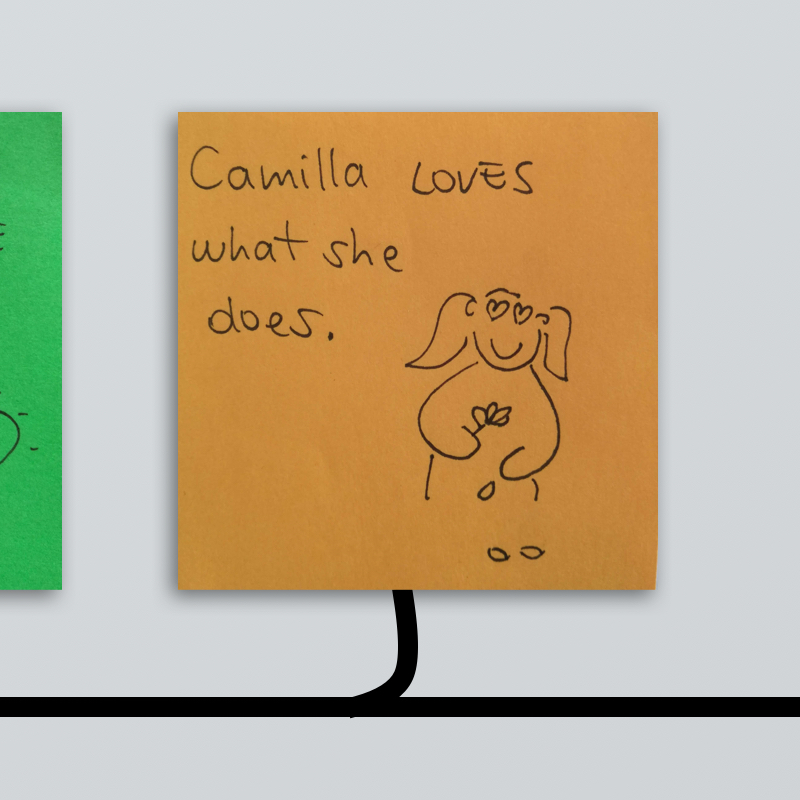 Camilla LOVES
what she
does.